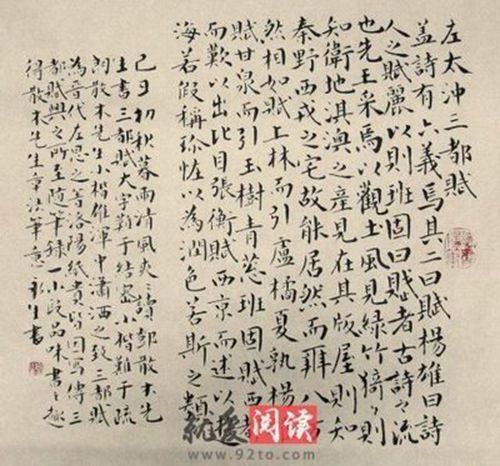 左太沖三都賦
蓋詩有六義焉其二曰賦楊雄曰詩
人之賦麗以則班固曰賦者古詩之流
也先王采焉以觀土風見綠竹猗〻則
知衛地淇澳之產見在其版屋則知
秦野西戎之宅故能居然而辨八方
然相如賦上林而引盧橘夏熟楊
賦甘泉而引玉樹青蔥班固賦西都
而歎以出比目張衡賦西京而述以
海若假稱珍怪以為潤色若斯之類
己丑初秋暮雨清風爽〻讀鄧散木先
生書三都賦大字難于結密小楷難于疏
朗散木先生小楷雄渾中瀟洒之致三都賦
為晉代左思之著洛陽紙貴皆因寫傳三
都賦興之所至隨筆錄一小段品味書之趣
得散木先生章法筆意 生書
就爱阅读
www.92to.com